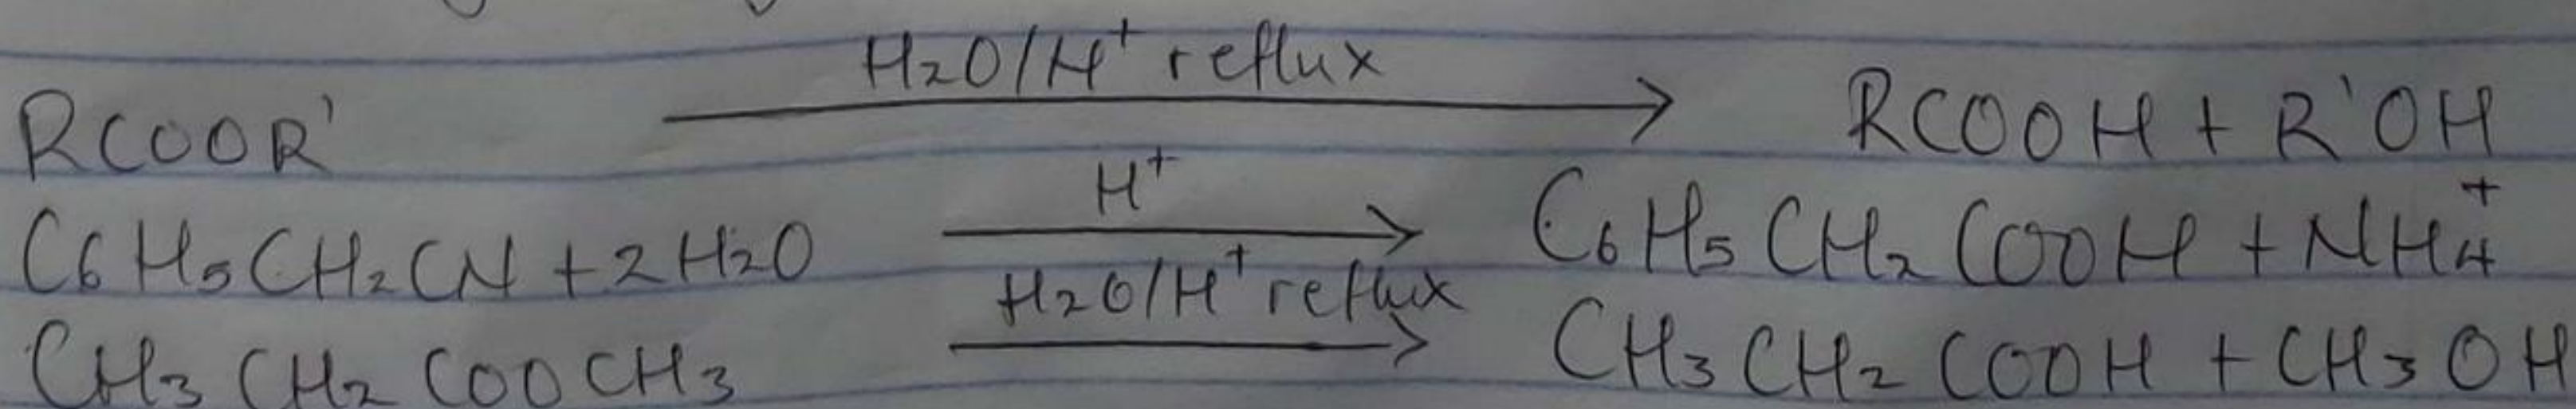 RCOOR' H2O/H+ reflux → RCOOH + R'OH
C6H5CH2CN + 2H2O H+ → C6H5CH2COOH + NH4+
CH3CH2COOCH3 H2O/H+ reflux → CH3CH2COOH + CH3OH